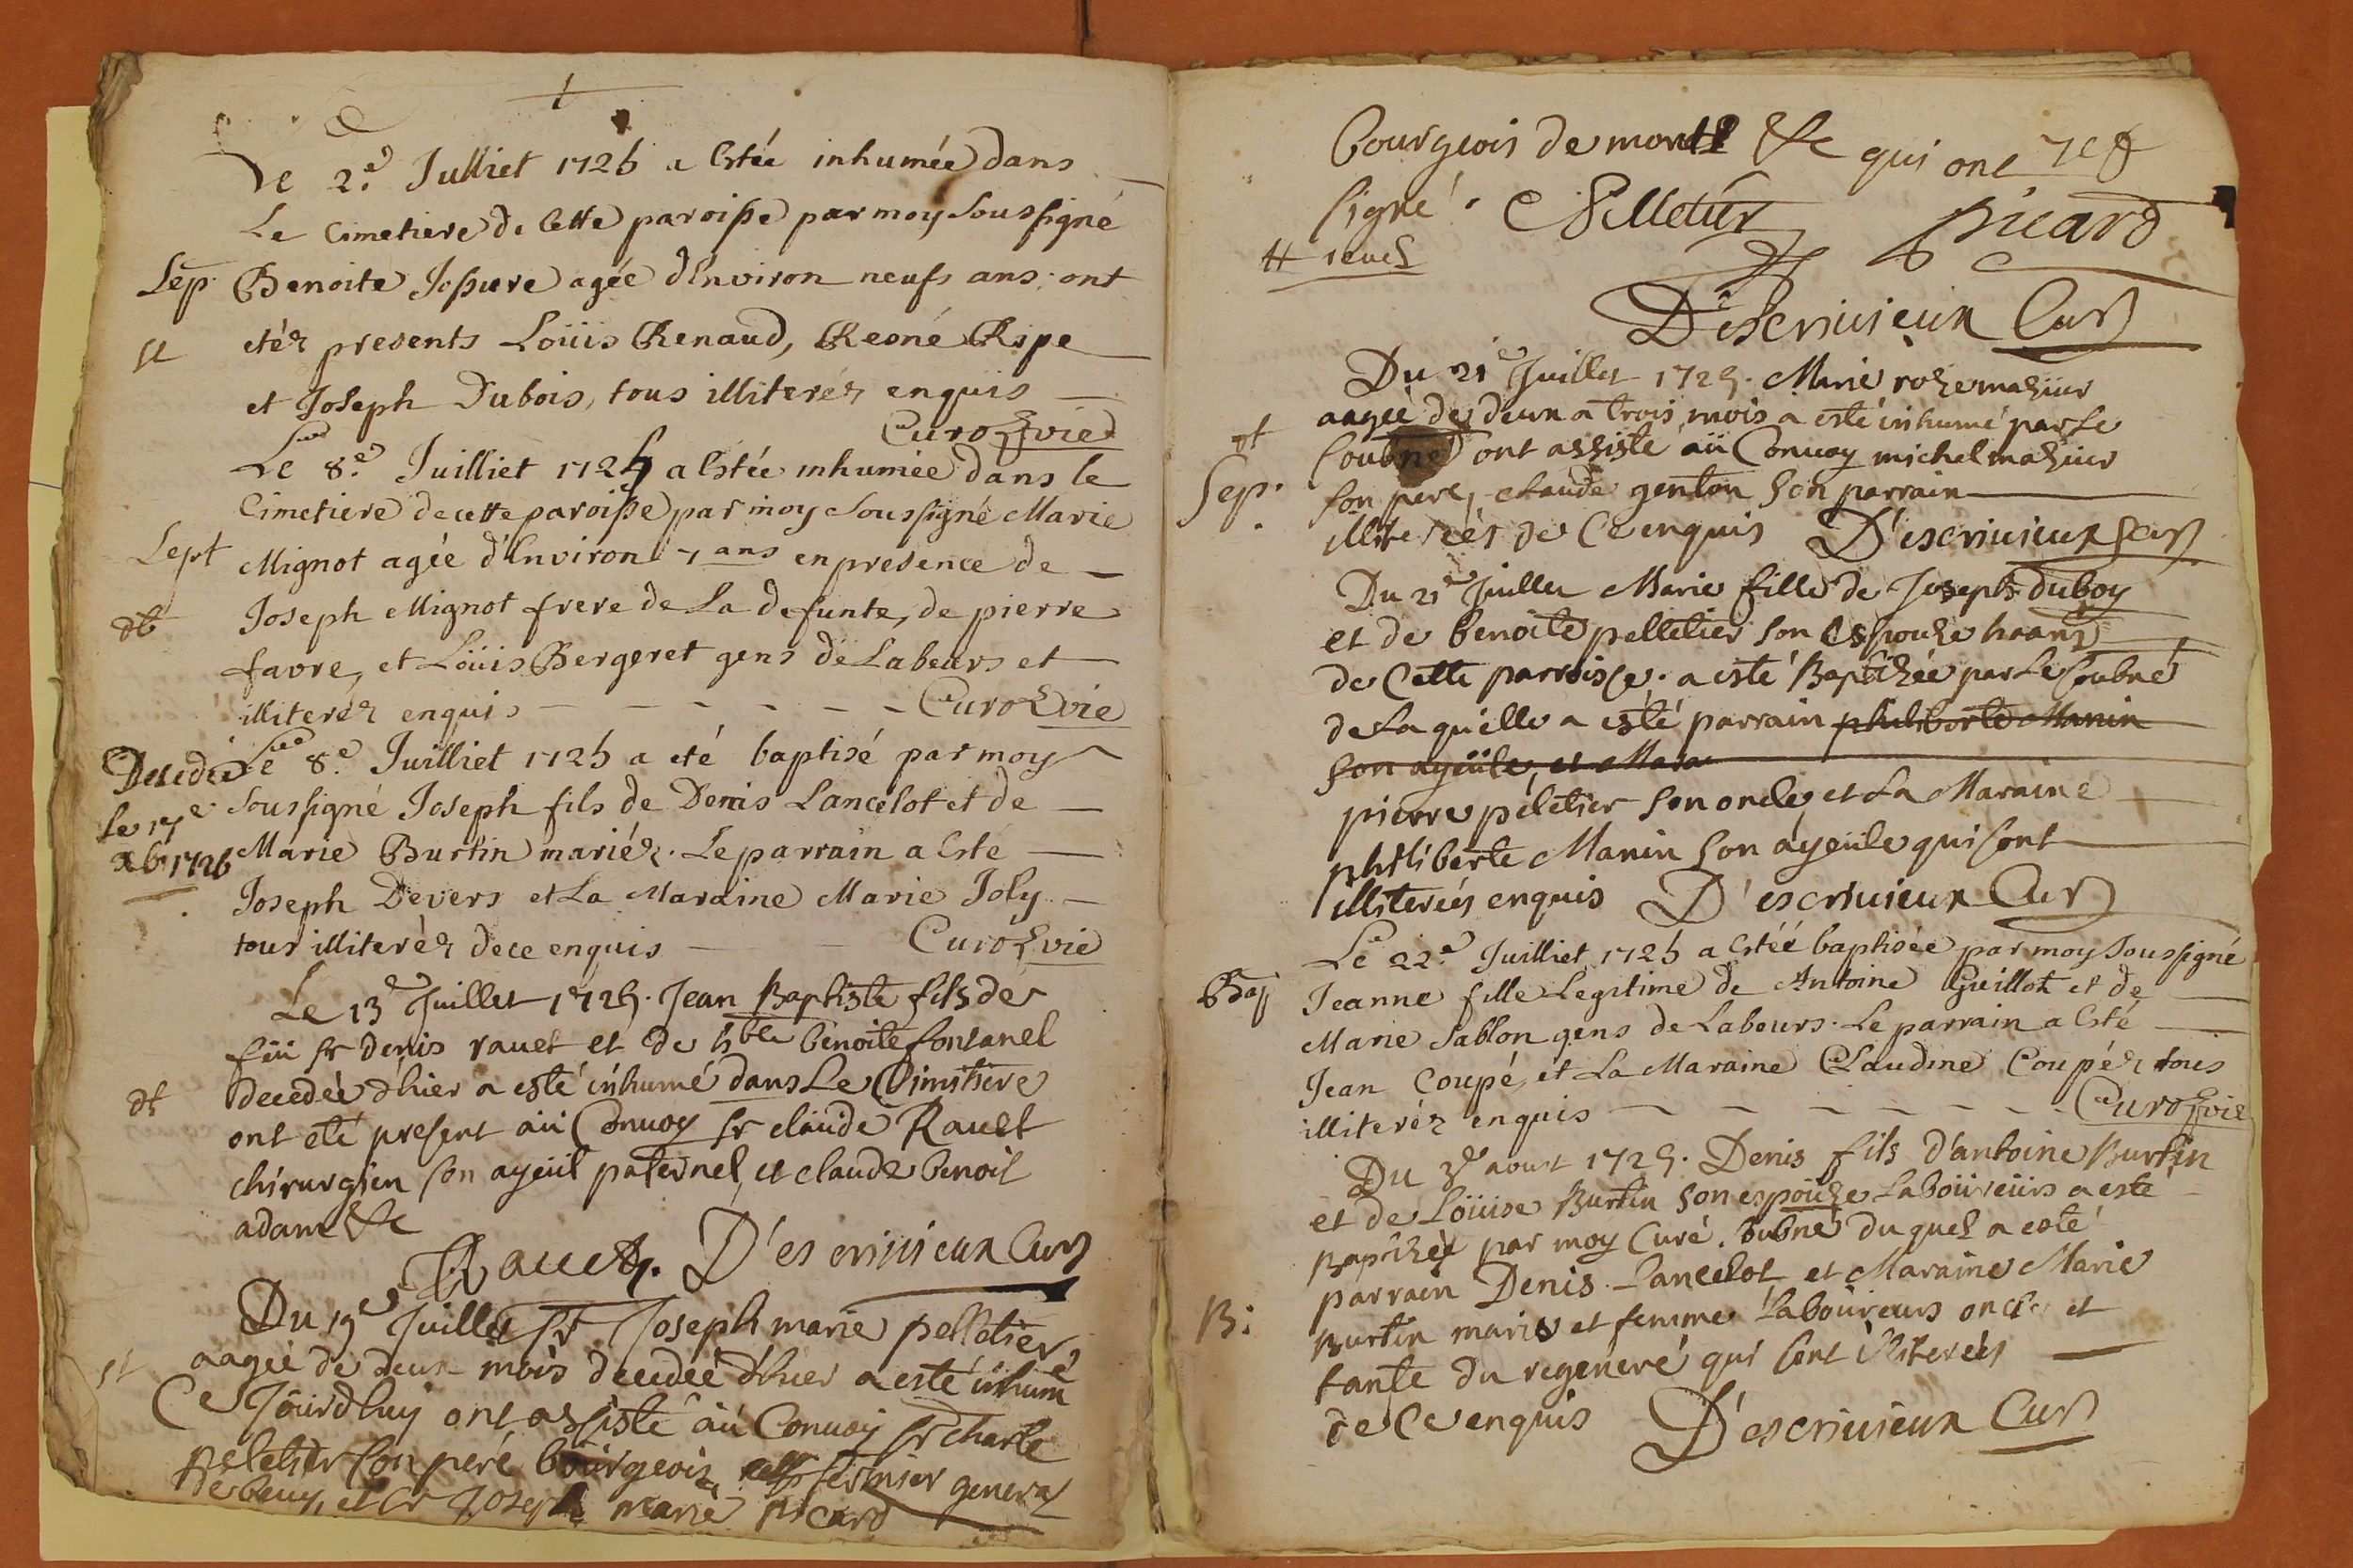 Le 2e Julliet 1725 a Estée inhumée dans
Le Cimetiere de Cette paroisse par moy Soussigné
Sep. Benoite Jossere agée dEnviron neufs ans. ont
etéz presents Loüis Renaud, Resné Ripe
et Joseph Dubois, tous illiteréz enquis
Curo Svie
Le 8e Juilliet 1725 a Estée inhumée dans le
Cimetiere de cette paroisse par moy Soussigné Marie
Sept Mignot agée d'Environ 7 ans en presence de
Joseph Mignot frere de La defunte, de pierre
favre, et Loüis Bergeret gens de Labeurs et
illiteréz enquis Curo Svie
Decedé Le 8e Juilliet 1725 a eté baptisé par moy
Le 17e Soussigné Joseph fils de Denis Lancelot et de
xbr 1726 Marie Burtin mariéz. Le parrain a Esté
Joseph Devers et La Maraine Marie Joly
tous illiteréz de ce enquis Curo Svie
Le 13e Juillet 1725. Jean Baptiste fils de
füi sr denis rauet et de hble benoite fontanel
dt decedée d'hier a esté inhumé dans Le Cimitiere
ont eté present aüi Conuoy sr claude Rauet
chirurgien son ayeüil paternel, et claude benoit
adam &c
Rauet. D'escriuieux Curé
Du 19e Juillet sr Joseph marie pelletier
aagée de deux mois decedée d'hier a esté inhumé
Ce Jourdhuy ont assisté aüi Conuoy sr charle
peletier son peré bourgeois fermier general
de beuy, et sr Joseph marie picard
bourgeois de &c qui ont
signé. Pelletier picard
D'escriuieux Curé
Du 21e Juillet 1725. Marie roze maziur
aagée de deux a trois mois a esté inhumé par Le
Soubné ont assiste aüi Conuoy michel maziur
Sep. son pere, claude genton son parrain
illiterées de Ce enquis D'escriuieux Curé
Du 21e Juillet Marie fille de Joseph duboy
et de benoite pelletier son Espouze haans
de Cette parroisse. a esté Baptizée par Le Soubné
de Laquelle a esté parrain philiberte Manin
son ayeüle, et Mara
pierre peletier son oncle et La Maraine
philiberte Manin son ayeüle qui sont
illiterées enquis D'escriuieux Curé
Le 22e Juilliet 1725 a Estéé baptisée par moy Soussigné
Bap Jeanne fille Legitime de Antoine Guillot et de
Marie Sablon gens de Labeurs. Le parrain a Esté
Jean Coupé, et La Maraine Claudine Coupéz tous
illiteréz enquis Curo Svie
Du 3e aout 1725. Denis fils d'antoine Burtin
et de Loüise Burtin son espoüze Laboüreürs a esté
Baptizée par moy Curé. Subné duquel a esté
parrain Denis Lancelot et Maraine Marie
B: Burtin marie et femme Laboüreurs oncle et
tante du regeneré qui sont illiterées
de Ce enquis D'escriuieux Curé